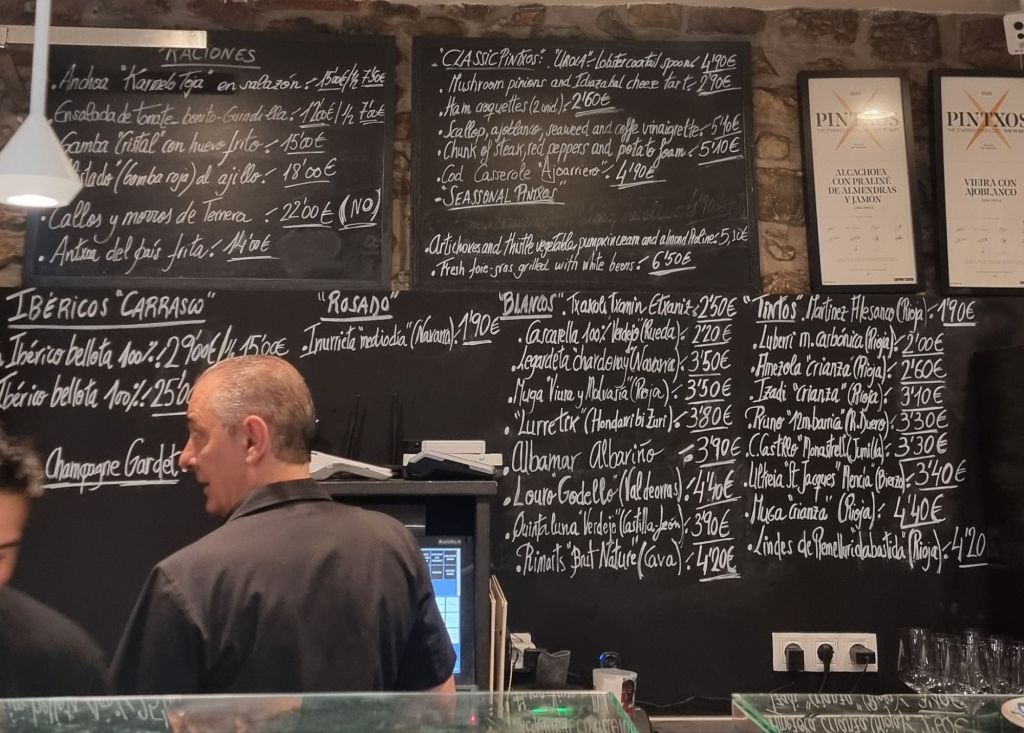 RACIONES
.Anchoa "Karmelo Toja" en salazón.- 15'00€/½ 7'50€
.Ensalada de Tomate-bonito-Guindilla.- /½
Gamba "Cristal" con huevo frito.- 15'00€
(Gamba roja) al ajillo.- 18'00€
.Callos y morros de Ternera.- 22'00€ (NO)
.Antxoa del país frita.- 14'00€
"CLASSIC PINTXOS". "UROLA"- lobster cocktail spoon 4'90€
.Mushroom pinions and Idazabal cheese tart.- 2'90€
.Ham croquettes (2 und).- 2'60€
.Scallop, ajoblanco, seaweed and coffe vinaigrette.- 5'40€
.Chunk of steak, red peppers and potato foam.- 5'10€
.Cod Casserole "Ajoarriero".- 4'90€
"SEASSONAL PINTXOS"
.Artichoves and thistle vegetable, pumpkin cream and almond Praline.- 5,30€
.Fresh foie-gras grilled with white beans.- 6'50€
PINTXOS
ALCACHOFA
CON PRALINÉ
DE ALMENDRAS
Y JAMÓN
PINTXOS
VIEIRA CON
AJOBLANCO
IBÉRICOS "CARRASCO"
Ibérico bellota 100%.- 29'00€/½ 15'00€
Ibérico bellota 100%.- 25'0
Champagne Gardet
"ROSADO"
.Inurrieta "mediodia" (Navarra).- 1'90€
"BLANCOS" .Txakoli Txomin Etxaniz.- 2'50€
.Carrarella 100% Verdejo (Rueda).- 2'20€
.Legardeta chardonay (Navarra).- 3'50€
.Muga "Viura y Malvasía" (Rioja).- 3'50€
."Lurretik" (Hondarribi Zuri).- 3'80€
.Albamar Albariño.- 3'90€
.Louro "Godello" (Valdeorras).- 4'40€
.Quinta luna "Verdejo" (Castilla-León).- 3'90€
.Rimarts "Brut Nature" (Cava).- 4'20€
"TINTOS" .Martinez Alesanco (Rioja).- 1'90€
.Luberri m. carbónica (Rioja).- 2'00€
.Amezola "crianza" (Rioja).- 2'60€
.Izadi "crianza" (Rioja).- 3'10€
.Pruno "12m barrica" (R. Duero).- 3'30€
.C. Castillo "Monastrell" (Jumilla).- 3'30€
.Ultreia St. Jacques "Mencía" (Bierzo).- 3'40€
.Muga "Crianza" (Rioja).- 4'40€
.Lindes de Remelluri "labastida" (Rioja).- 4'20